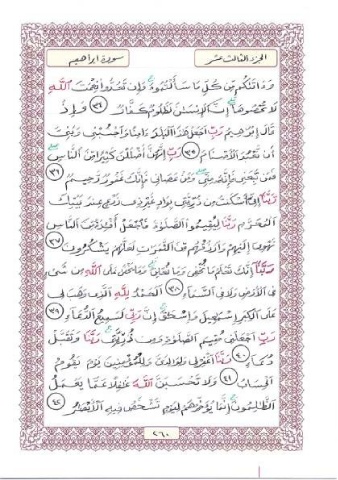 الجزء الثالث عشر سورة ابراهيم
وَءَاتَىٰكُم مِّن كُلِّ مَا سَأَلْتُمُوهُ ۚ وَإِن تَعُدُّوا۟ نِعْمَتَ ٱللَّهِ
لَا تُحْصُوهَآ ۗ إِنَّ ٱلْإِنسَـٰنَ لَظَلُومٌ كَفَّارٌ ٣٤ وَإِذْ
قَالَ إِبْرَٰهِيمُ رَبِّ ٱجْعَلْ هَـٰذَا ٱلْبَلَدَ ءَامِنًا وَٱجْنُبْنِى وَبَنِىَّ
أَن نَّعْبُدَ ٱلْأَصْنَامَ ٣٥ رَبِّ إِنَّهُنَّ أَضْلَلْنَ كَثِيرًا مِّنَ ٱلنَّاسِ ۖ
فَمَن تَبِعَنِى فَإِنَّهُۥ مِنِّى ۖ وَمَنْ عَصَانِى فَإِنَّكَ غَفُورٌ رَّحِيمٌ ٣٦
رَّبَّنَآ إِنِّىٓ أَسْكَنتُ مِن ذُرِّيَّتِى بِوَادٍ غَيْرِ ذِى زَرْعٍ عِندَ بَيْتِكَ
ٱلْمُحَرَّمِ رَبَّنَا لِيُقِيمُوا۟ ٱلصَّلَوٰةَ فَٱجْعَلْ أَفْـِٔدَةً مِّنَ ٱلنَّاسِ
تَهْوِىٓ إِلَيْهِمْ وَٱرْزُقْهُم مِّنَ ٱلثَّمَرَٰتِ لَعَلَّهُمْ يَشْكُرُونَ ٣٧
رَبَّنَآ إِنَّكَ تَعْلَمُ مَا نُخْفِى وَمَا نُعْلِنُ ۗ وَمَا يَخْفَىٰ عَلَى ٱللَّهِ مِن شَىْءٍ
فِى ٱلْأَرْضِ وَلَا فِى ٱلسَّمَآءِ ٣٨ ٱلْحَمْدُ لِلَّهِ ٱلَّذِى وَهَبَ لِى
عَلَى ٱلْكِبَرِ إِسْمَـٰعِيلَ وَإِسْحَـٰقَ ۚ إِنَّ رَبِّى لَسَمِيعُ ٱلدُّعَآءِ ٣٩
رَبِّ ٱجْعَلْنِى مُقِيمَ ٱلصَّلَوٰةِ وَمِن ذُرِّيَّتِى ۚ رَبَّنَا وَتَقَبَّلْ
دُعَآءِ ٤٠ رَبَّنَا ٱغْفِرْ لِى وَلِوَٰلِدَىَّ وَلِلْمُؤْمِنِينَ يَوْمَ يَقُومُ
ٱلْحِسَابُ ٤١ وَلَا تَحْسَبَنَّ ٱللَّهَ غَـٰفِلًا عَمَّا يَعْمَلُ
ٱلظَّـٰلِمُونَ ۚ إِنَّمَا يُؤَخِّرُهُمْ لِيَوْمٍ تَشْخَصُ فِيهِ ٱلْأَبْصَـٰرُ ٤٢
٢٦٠